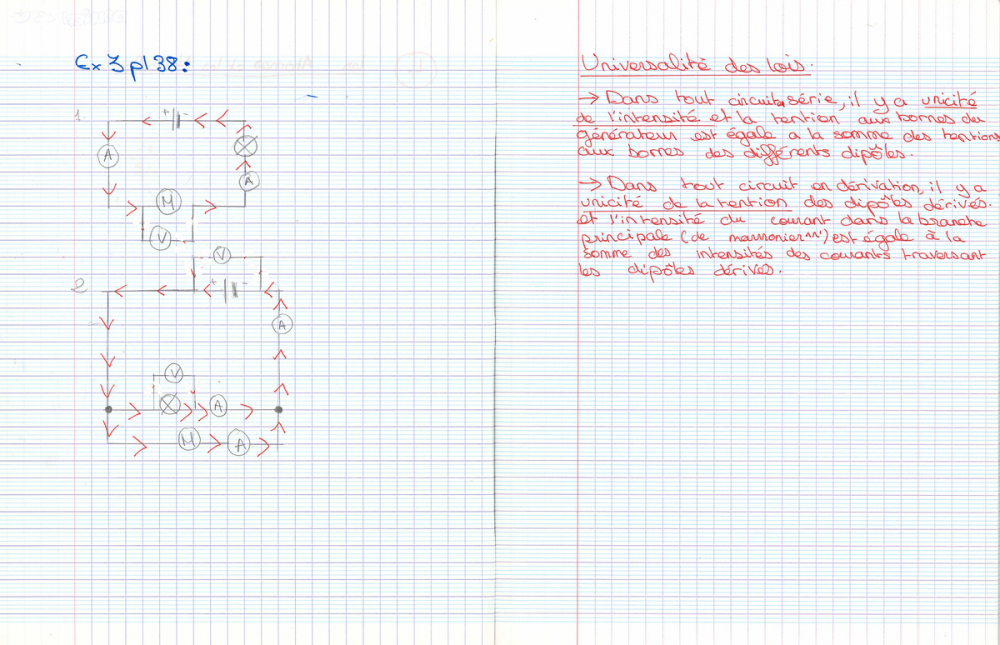 Ex 3 p138:
1
+ -
A
A
M
V
V
2
+ -
A
V
A
M A
Universalité des lois.
→ Dans tout circuit série, il y a unicité
de l'intensité et la tention aux bornes du
générateur est égale a la somme des tentions
aux bornes des différents dipôles.
→ Dans tout circuit en dérivation, il y a
unicité de la tention des dipôles dérivés.
et l'intensité du courant dans la branche
principale (de marronier ^^) est égale à la
somme des intensités des courants traversant
les dipôles dérivés.